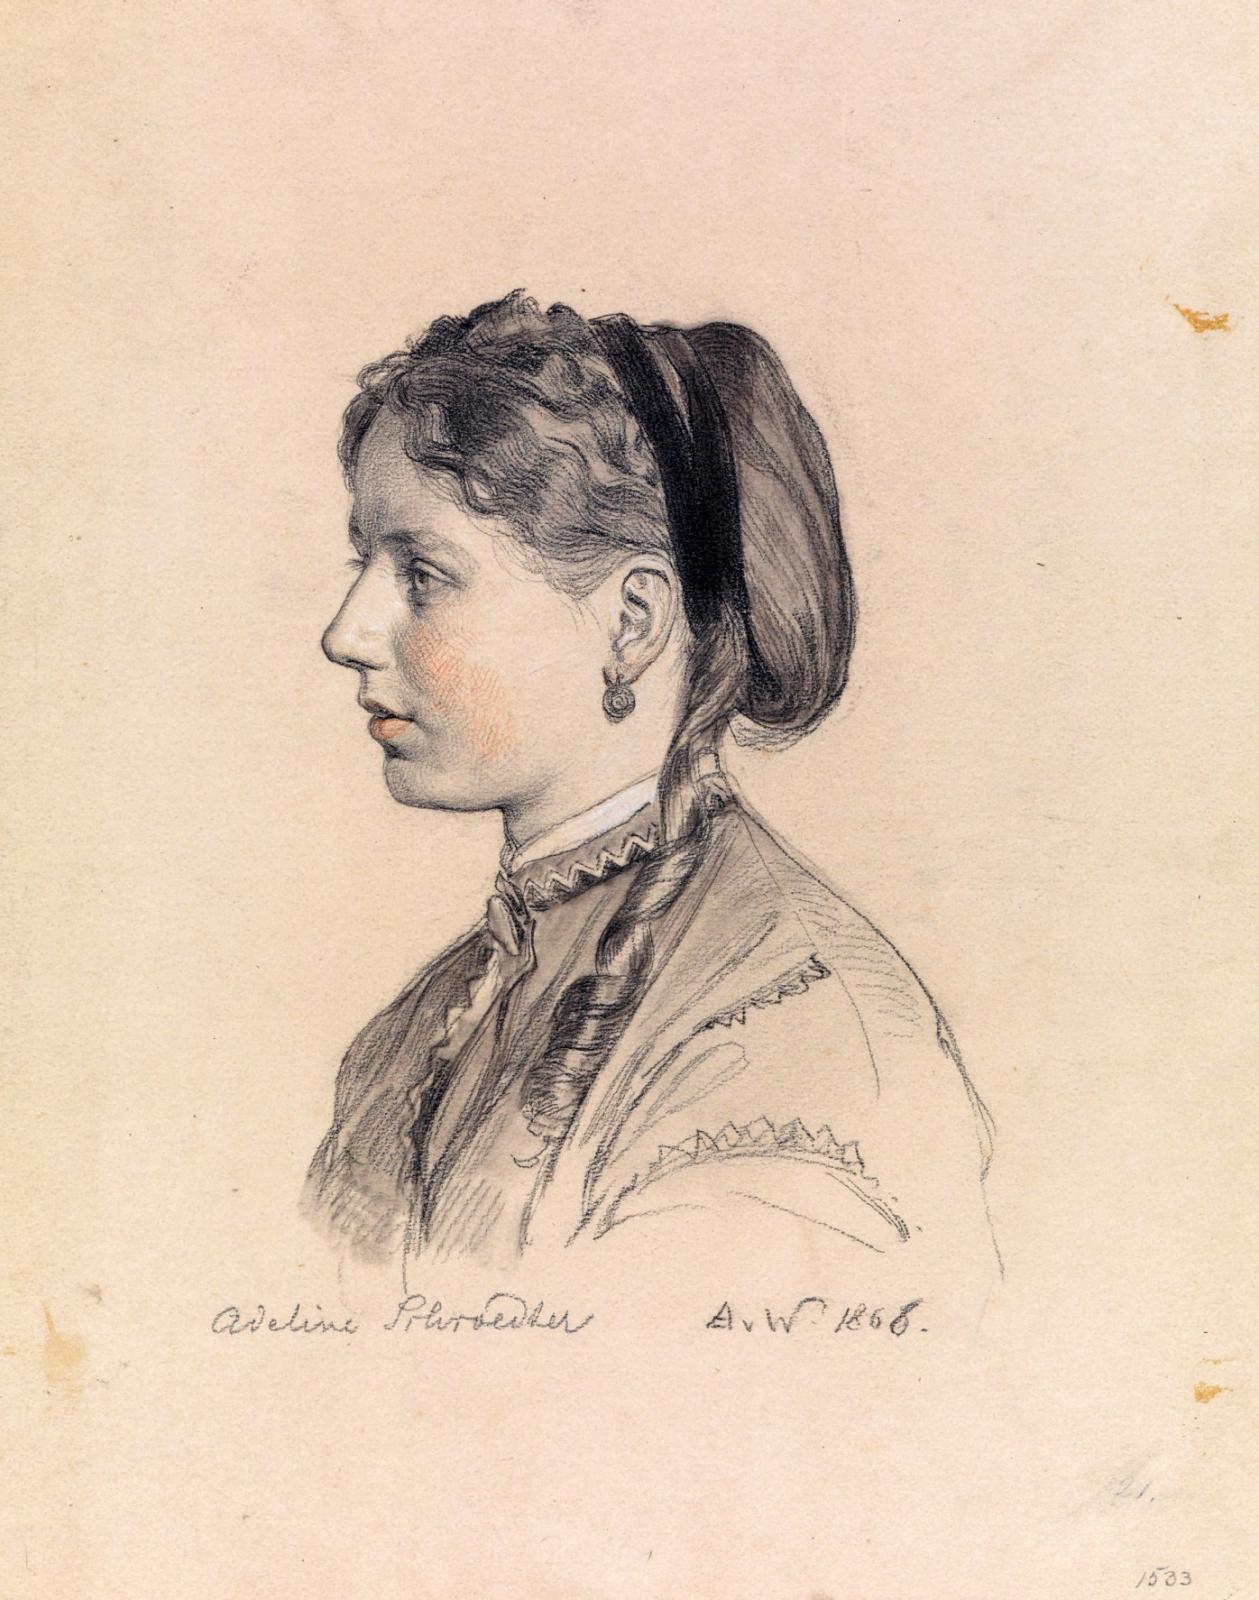 Adeline Schroedter A.v.W. 1866.
21.
1533